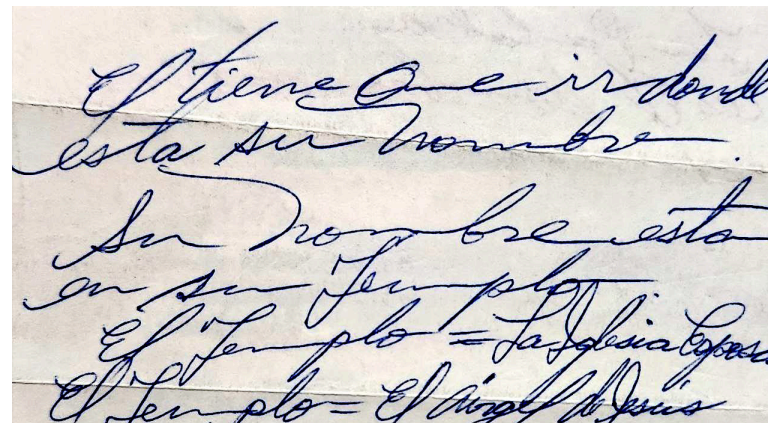 El tiene que ir donde
esta su nombre.
Su nombre esta
en su Templo
El Templo = La Iglesia Esposa
El Templo = El ángel de Jesús